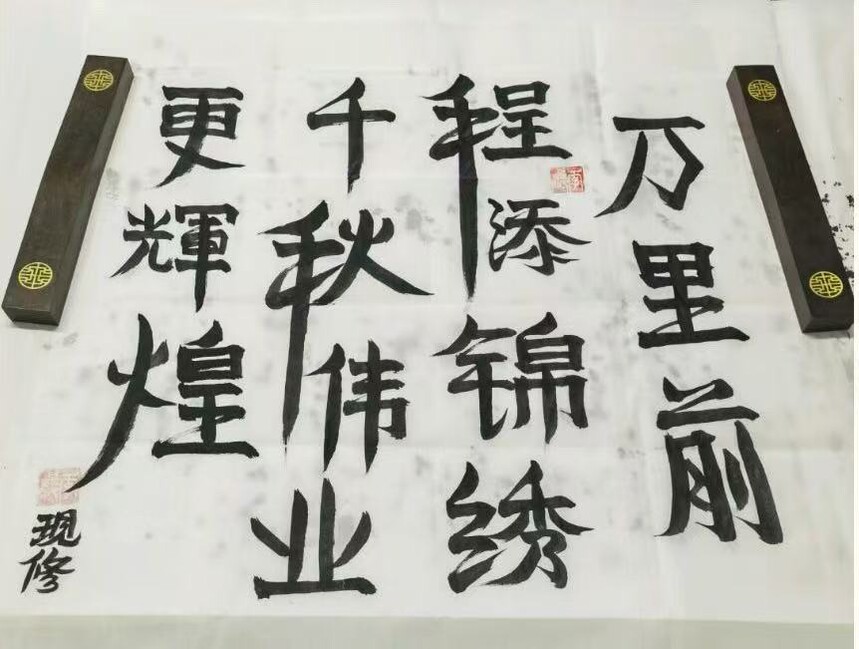 万里前
程添锦绣
千秋伟业
更輝煌
现修